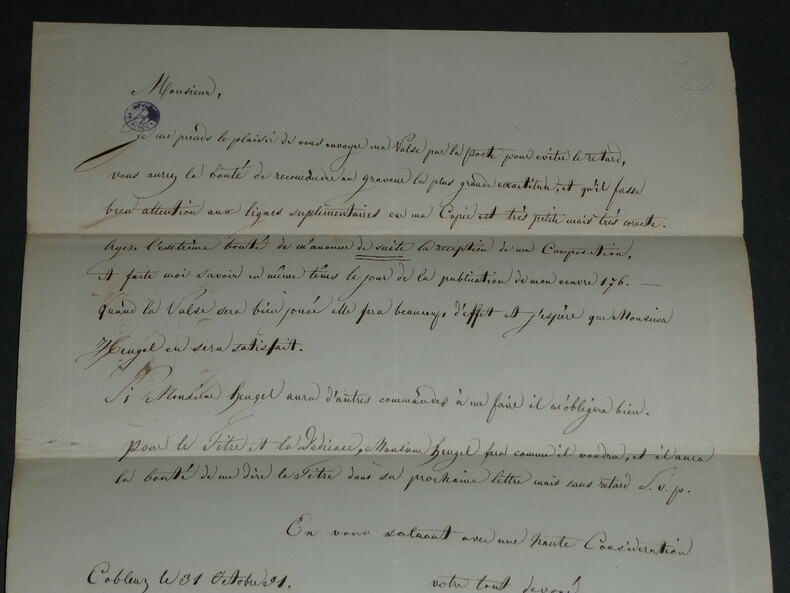 Monsieur,
Je me prends le plaisir de vous envoyer ma Valse par la poste pour éviter le retard,
vous aurez la bonté de recomander au graveur la plus grande exactitude, et qu'il fasse
bien attention aux lignes suplementaires car ma Copie est très petite mais très corecte.
Ayez l'extrême bonté de m'anoncer de suite la réception de ma Composition,
et faite moi savoir en même têms le jour de la publication de mon oeuvre 176. —
quand la Valse sera bien jouée elle fera beaucoup d'effet et j'espère que Monsieur
Heugel en sera satisfait.
Si Monsieur Heugel aura d'autres commandes à me faire il m'obligera bien.
pour le Titre et la Dédicace, Monsieur Heugel fera comme il voudra, et il aura
la bonté de me dire le Titre dans sa prochaine lettre mais sans retard S. v. p.
En vous saluant avec une haute Considération
Coblenz le 31 Octobre 51.
votre tout devoué